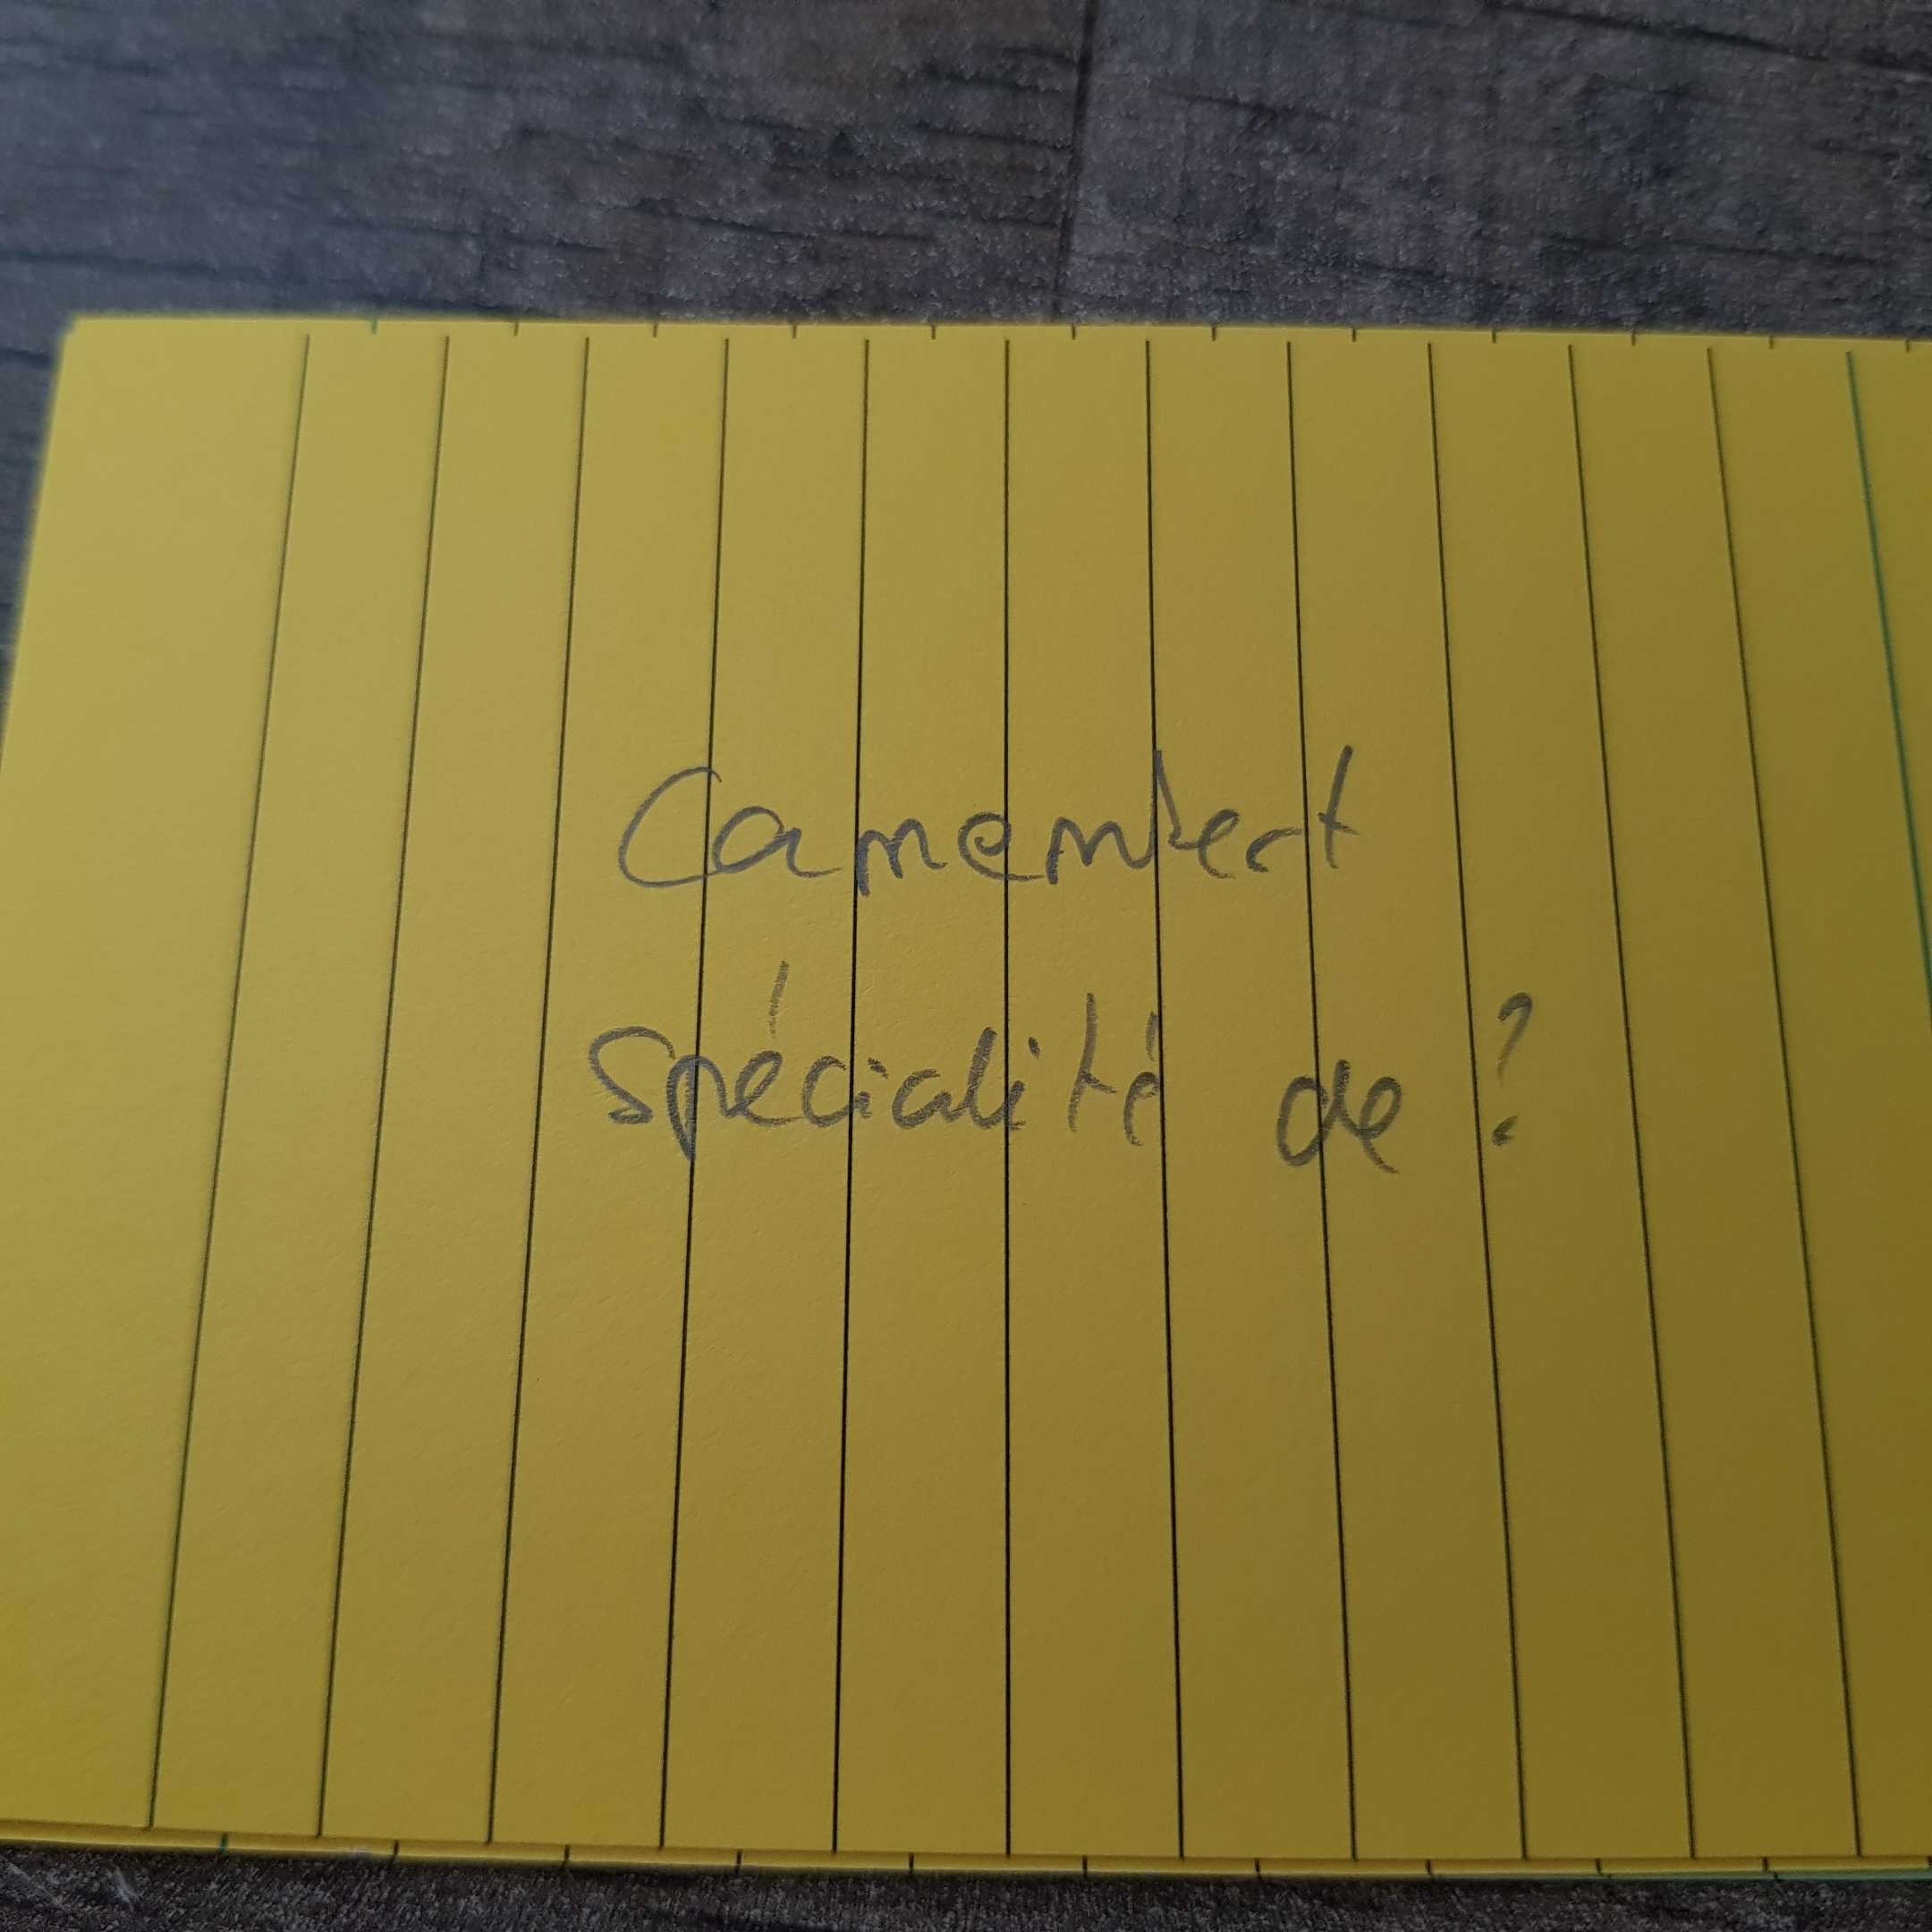 Camembert
spécialité de ?